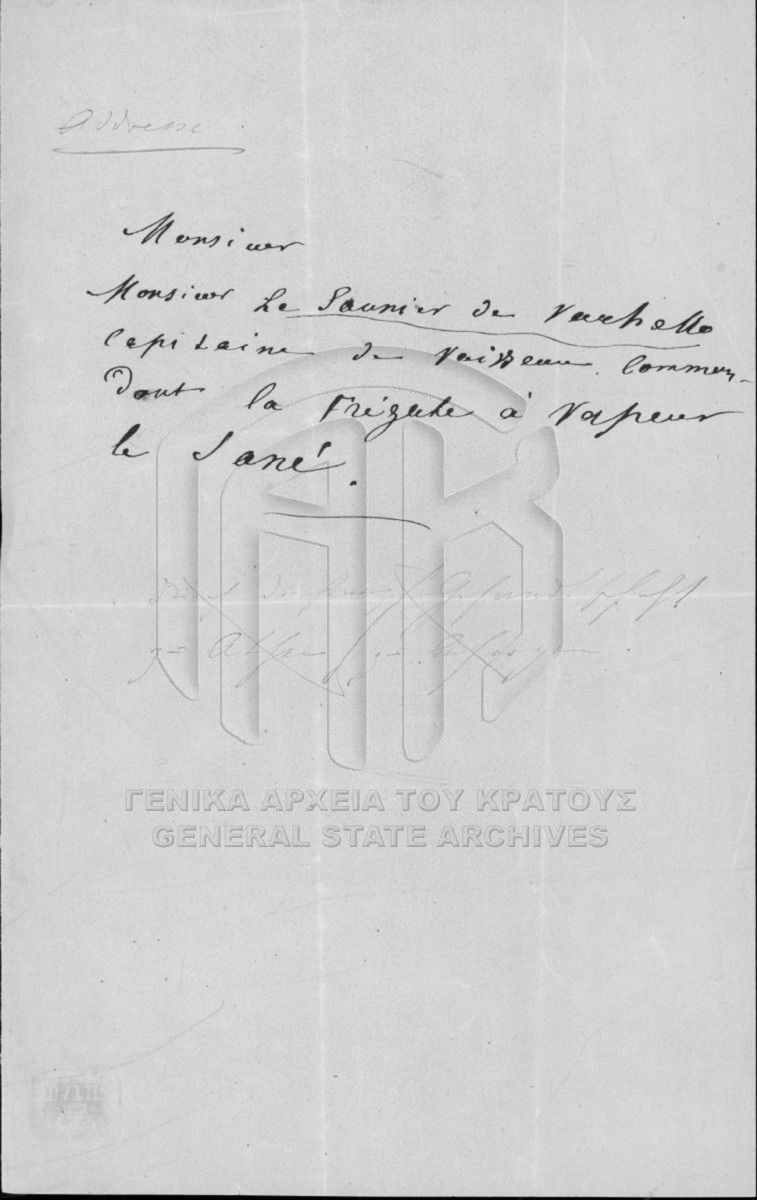 Addresse
Monsieur
Monsieur Le Saunier de Vauhello
Capitaine de Vaisseau. Comman-
dant la Frégate à Vapeur
le Sané.
zu Athen zu
ΓΕΝΙΚΑ ΑΡΧΕΙΑ ΤΟΥ ΚΡΑΤΟΥΣ
GENERAL STATE ARCHIVES